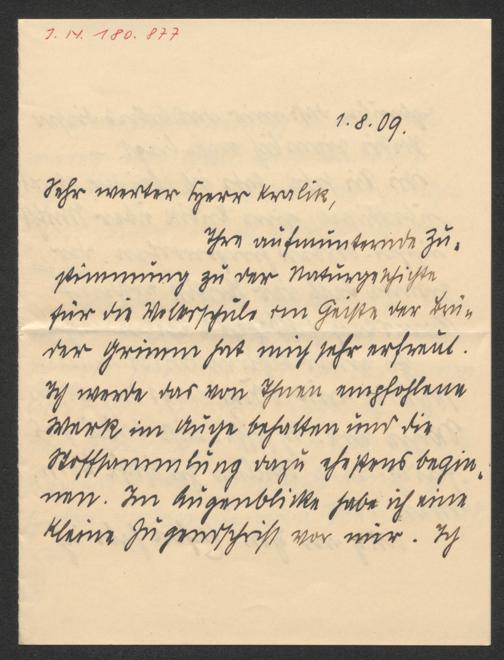 J. N. 180.877
1.8.09.
Sehr werter Herr Kralik,
Ihre aufmunternde Zu-
stimmung zu der Naturgeschichte
für die Volksschule im Geiste der Brü-
der Grimm hat mich sehr erfreut.
Ich werde das von Ihnen empfohlene
Werk im Auge behalten und die
Stoffsammlung dazu ehestens begin-
nen. Im Augenblicke habe ich eine
kleine Jugendschrift vor mir. Ich